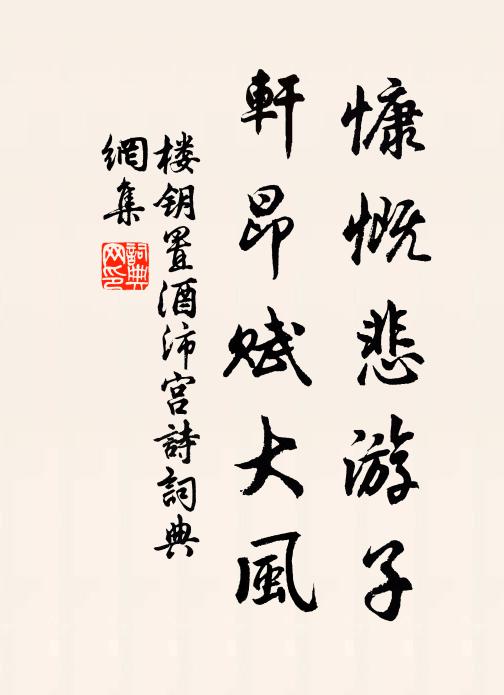 慷慨悲游子
軒昂賦大風
楼钥置酒沛宫詩詞典
網集
詞典网印